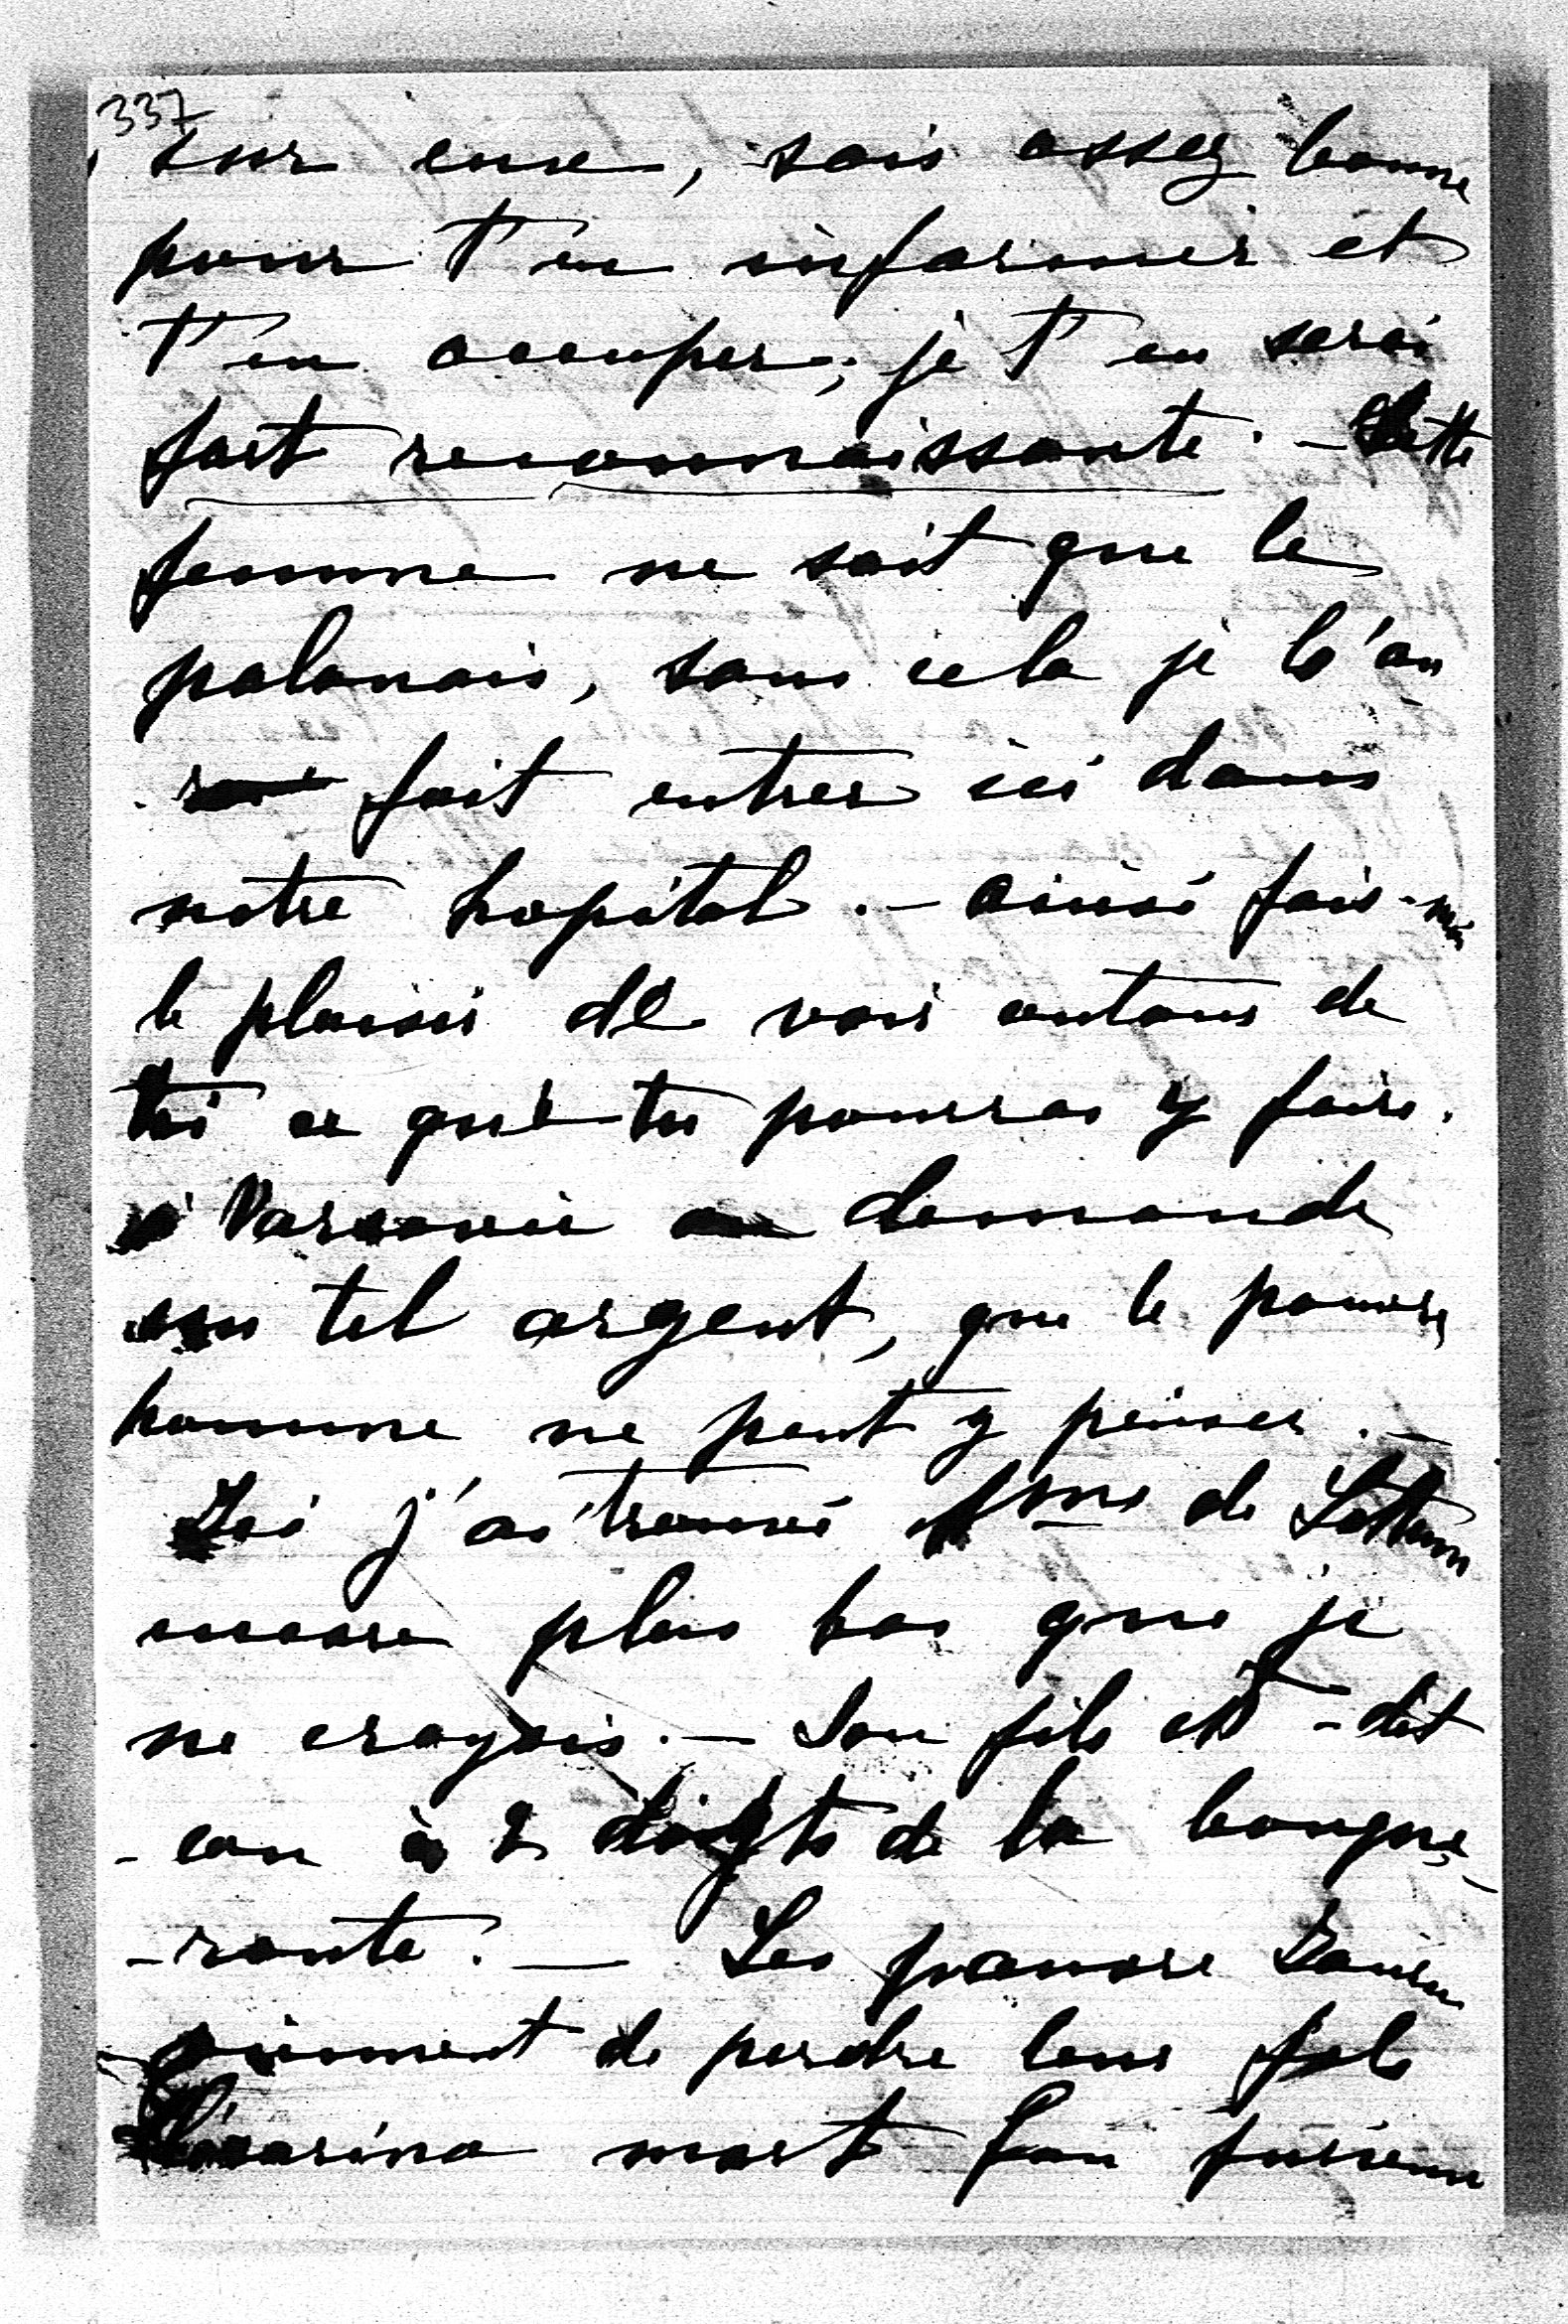 337
sur eux, sois assez bonne
pour t'en informer et
t'en occuper; je t'en serai
fort reconnaissante. — Cette
femme ne sait que le
polonais, sans cela je l'au
fait entrer ici dans
notre hopital. — ainsi fais-moi
le plaisir de voir autour de
toi ce que tu pourras y faire.
à Varsovie on demande
un tel argent, que le pauvre
homme ne peut y penser. —
Ici j'ai trouvé Mme de
encore plus bas que je
ne croyais. — Son fils est - dit
- on à 2 doigts de la banque-
- route. — Les pauvre
de perdre leur fils
mort fou furieux